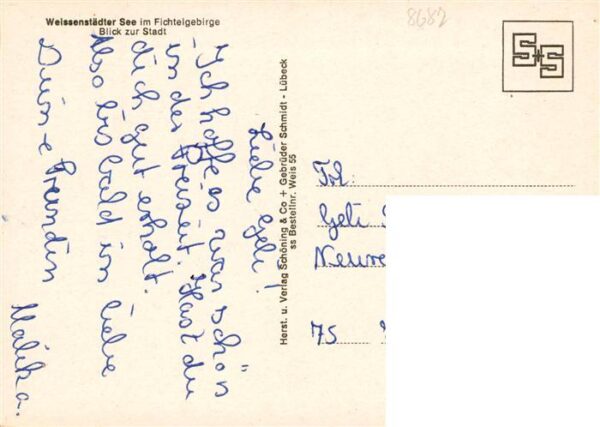 Weissenstädter See im Fichtelgebirge
Blick zur Stadt
8682
S+S
Liebe Geli!
Ich hoffe es war schön
in der Freizeit. Hast du
dich gut erholt.
Also bis bald in Liebe
Deine Freundin
Malika.
Herst. u. Verlag Schöning & Co + Gebrüder Schmidt - Lübeck
ss Bestellnr. Weis 55
Frl.
Geli
75